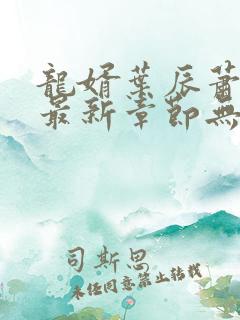 龍婿葉辰蕭
最新章節無
司斯思
未經同意禁止轉載